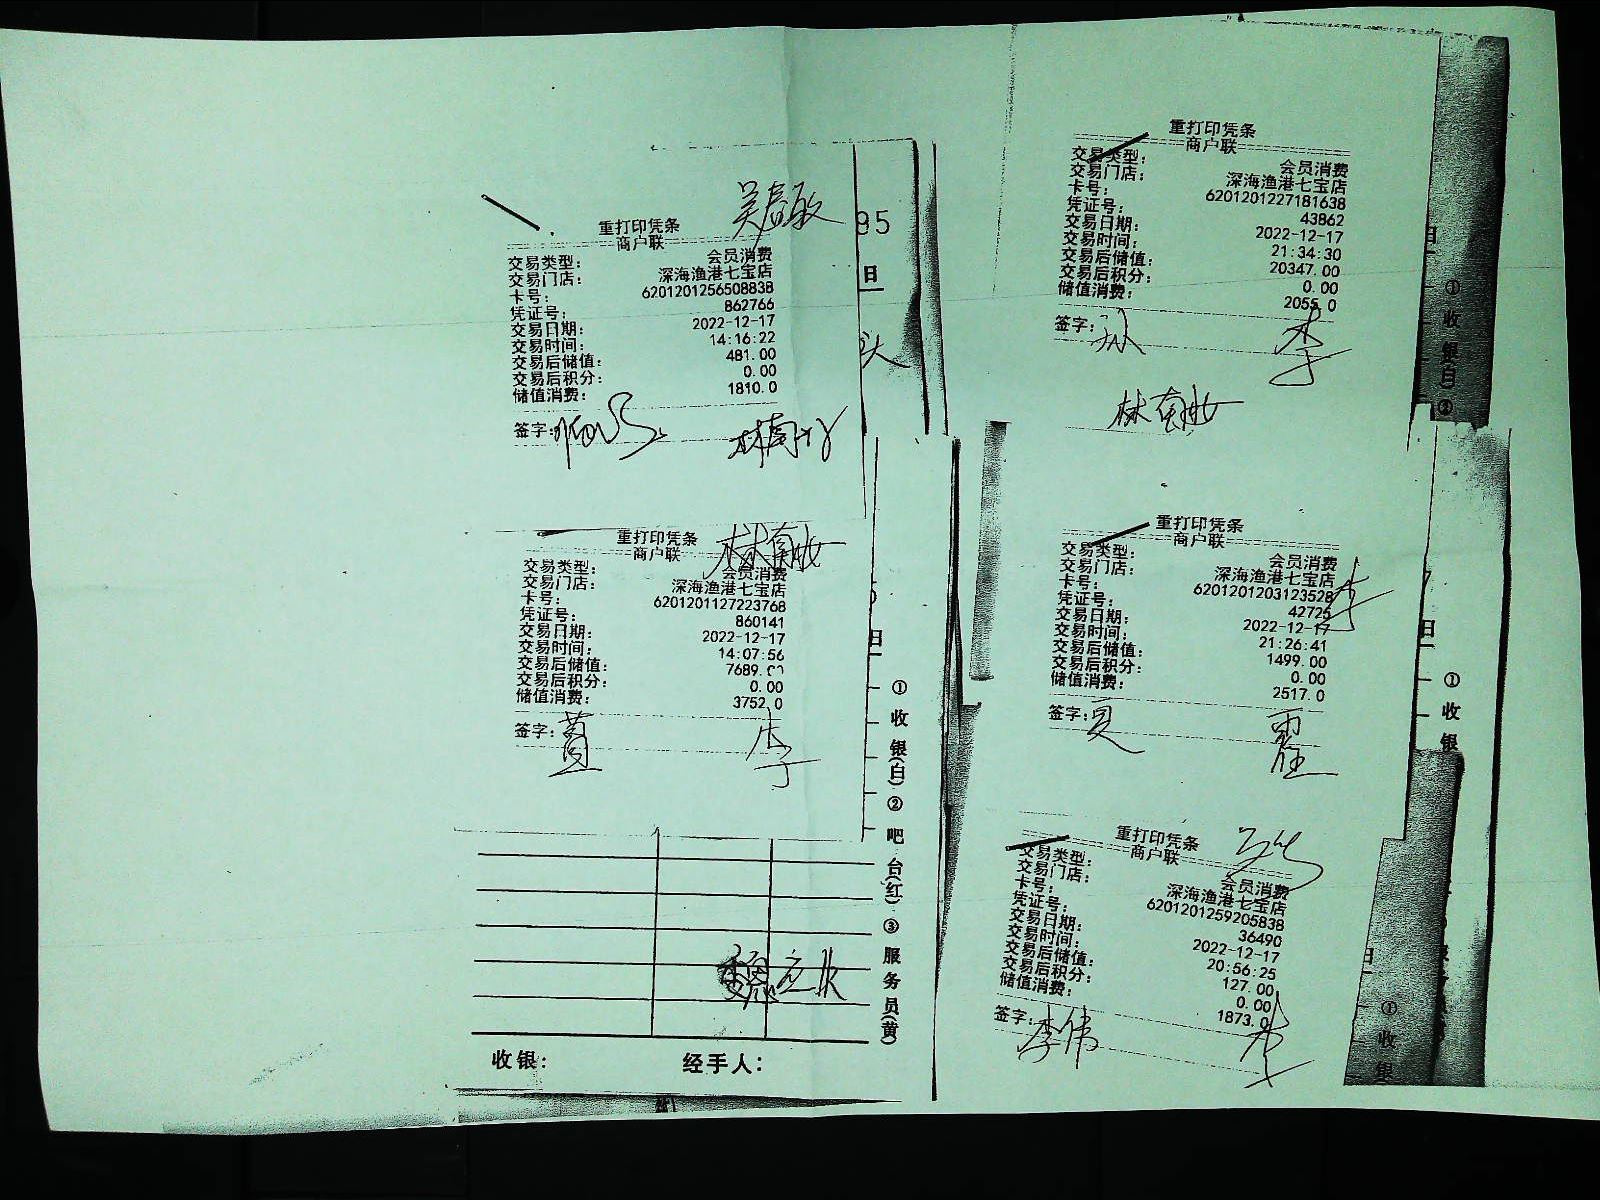 吴春敏
重打印凭条
商户联
交易类型: 会员消费
交易门店: 深海渔港七宝店
卡号: 6201201256508838
凭证号: 862766
交易日期: 2022-12-17
交易时间: 14:16:22
交易后储值: 481.00
交易后积分: 0.00
储值消费: 1810.0
签字:
95
日
重打印凭条
商户联
交易类型: 会员消费
交易门店: 深海渔港七宝店
卡号: 6201201127223768
凭证号: 860141
交易日期: 2022-12-17
交易时间: 14:07:56
交易后储值: 7689.00
交易后积分: 0.00
储值消费: 3752.0
签字:
日
①收银(白)②吧台(红)③服务员(黄)
收银: 经手人:
重打印凭条
商户联
交易类型: 会员消费
交易门店: 深海渔港七宝店
卡号: 6201201227181638
凭证号: 43862
交易日期: 2022-12-17
交易时间: 21:34:30
交易后储值: 20347.00
交易后积分: 0.00
储值消费: 2055.0
签字: 李
日
①收银(白)②
重打印凭条
商户联
交易类型: 会员消费
交易门店: 深海渔港七宝店
卡号: 6201201203123528
凭证号: 42725
交易日期: 2022-12-17
交易时间: 21:26:41
交易后储值: 1499.00
交易后积分: 0.00
储值消费: 2517.0
签字:
李
日
①收银
重打印凭条
商户联
交易类型: 会员消费
交易门店: 深海渔港七宝店
卡号: 6201201259205838
凭证号: 36490
交易日期: 2022-12-17
交易时间: 20:56:25
交易后储值: 127.00
交易后积分: 0.00
储值消费: 1873.0
签字: 李伟 李
日
①收银